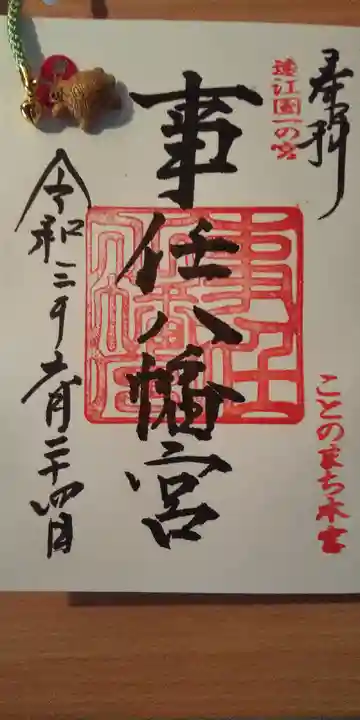 奉拝
遠江国一の宮
ことのまち本宮
事任八幡宮
事任八幡宮
令和三年六月二十四日